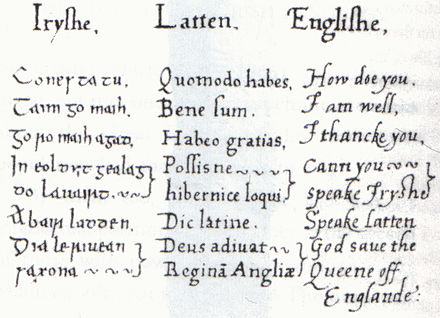 Iryshe, Latten, Englishe,
Coneꞃ ta tu, Quomodo habes, How doe you,
Taim go maih, Bene sum. I am well,
Go ꞃo maih agat, Habeo gratias, I thancke you,
In eolꞃ gealag Possis ne Cann you
do lauaiꞃt hibernice loqui, speake Iryshe
Abaiꞃ ladden, Dic latine. Speake Latten
Dia le ꞃiuean Deus adiuat God save the
ꞅaxona Reginā Angliæ Queene off
Englande: